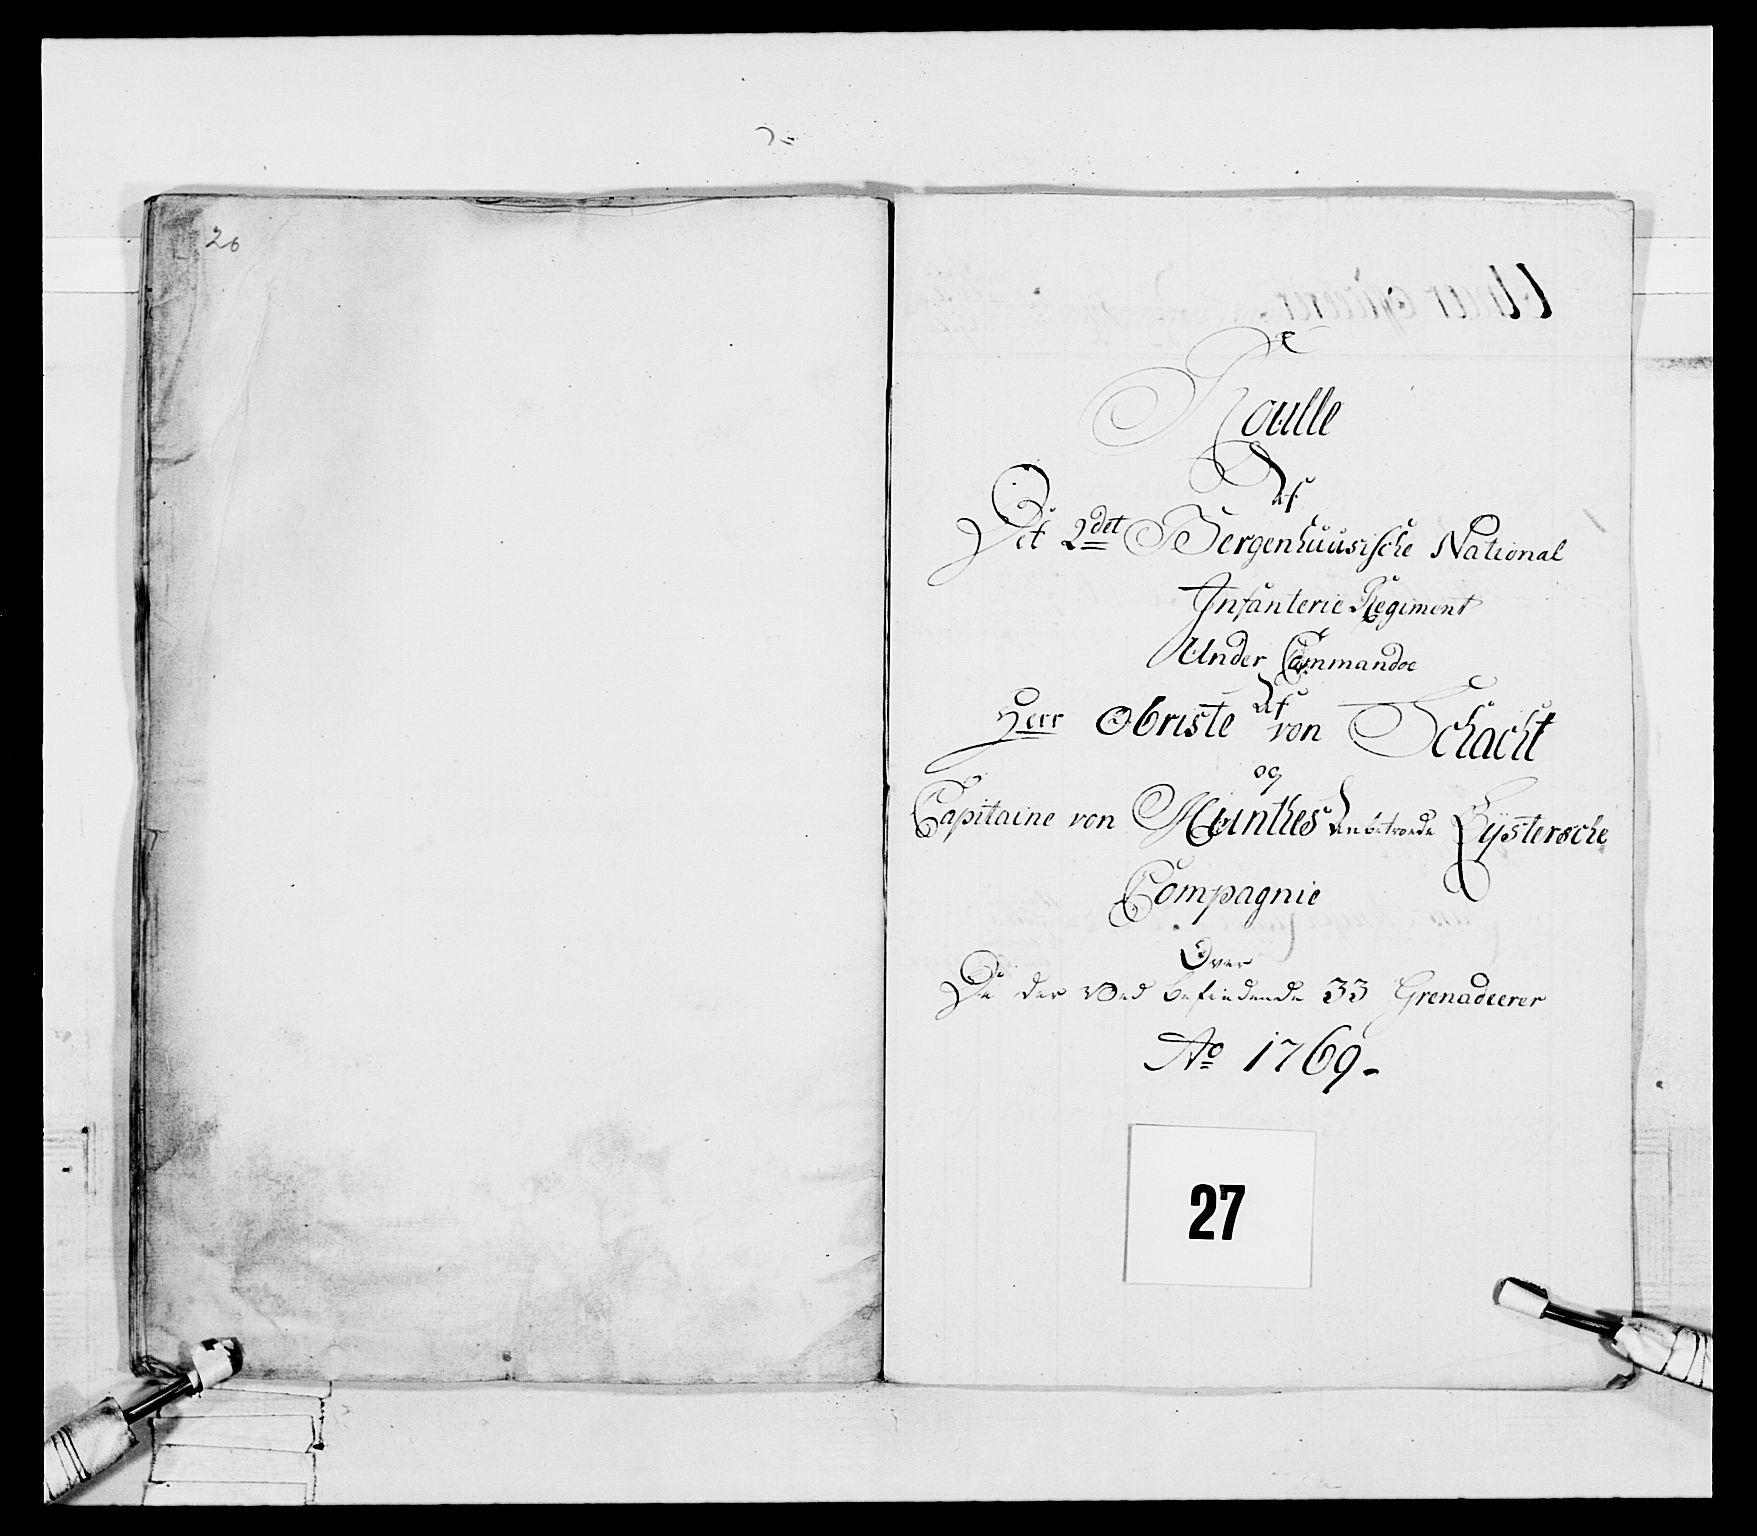 26
Roulle
Af
Det 2det Bergenhuusische National
Infanterie Regiment
Under Commandoe
Af
Herr Obriste von Schacht
og
Capitaine von Munthes anbetroede Lystersche
Compagnie
Over
De der ved befindende 33 Grenadeerer
Ao 1769.
27